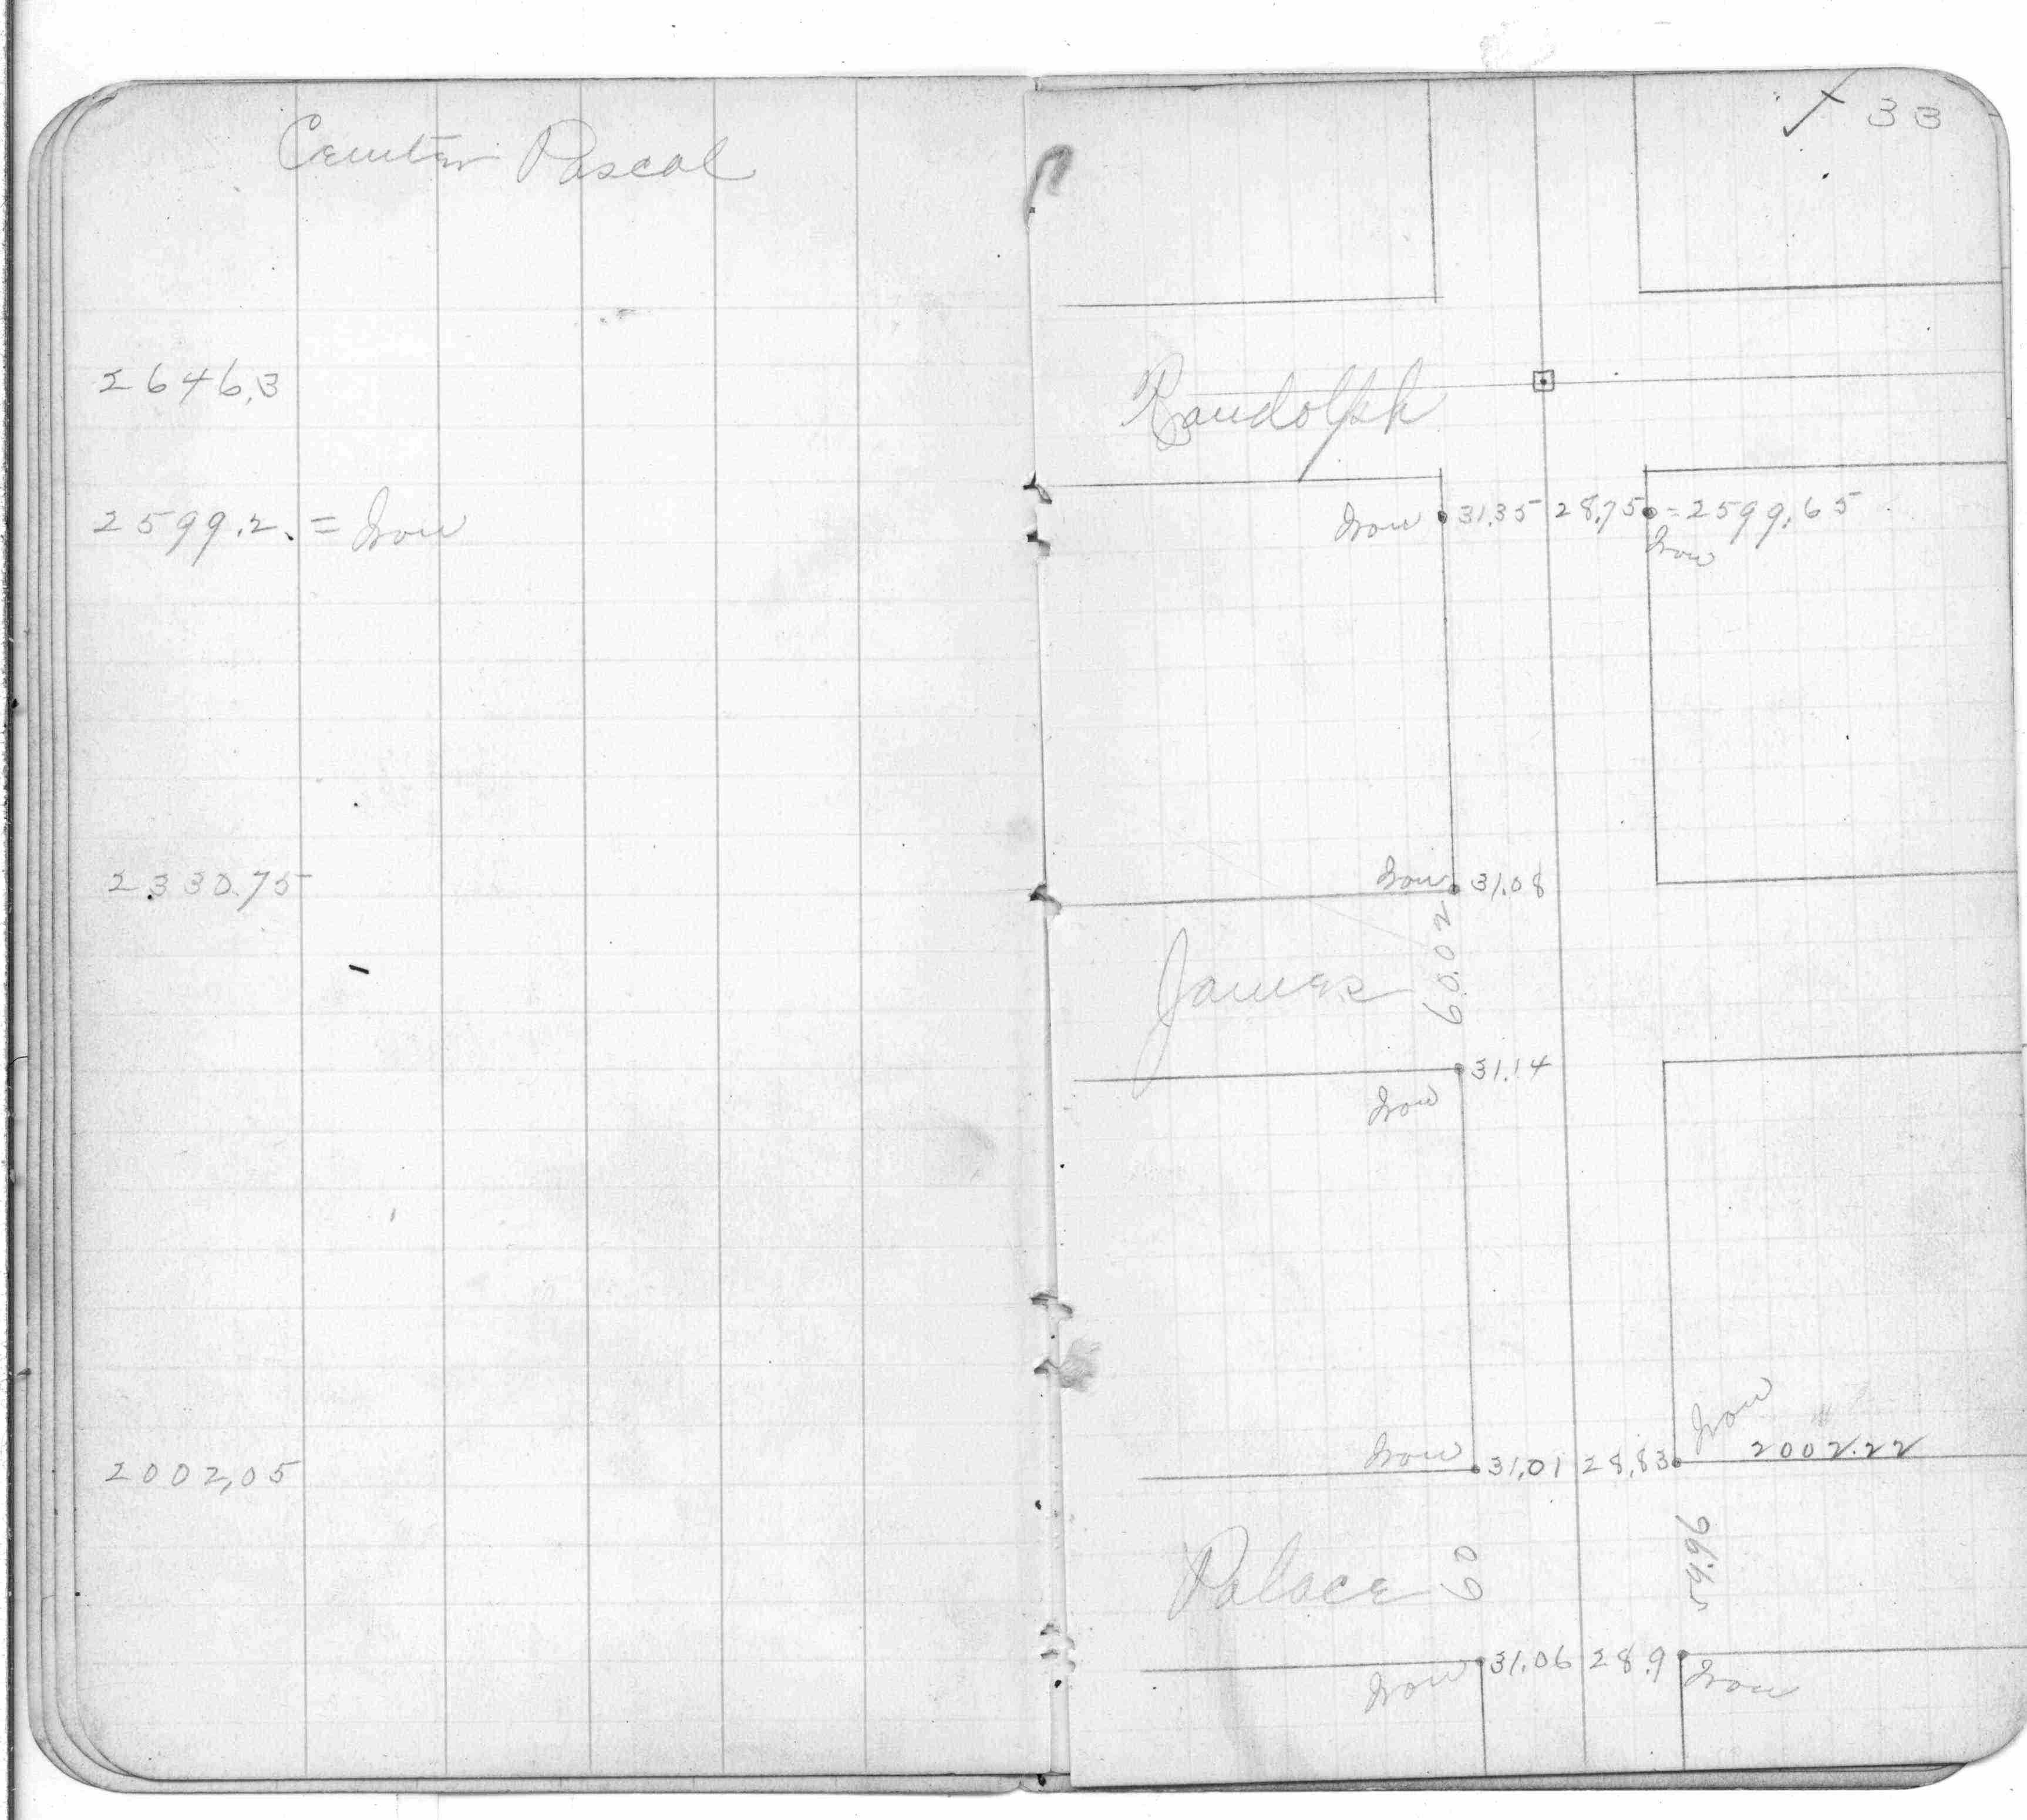 Center Pascal
2646.3
2599.2. = Iron
2330.75
2002.05
33
Randolph
Iron 31.35 28.75 = 2599.65
Iron
Iron 31.08
60.02
James
31.14
Iron
Iron
Iron 31.01 28.83 2002.22
Palace 60 59.96
31.06 28.9
Iron Iron